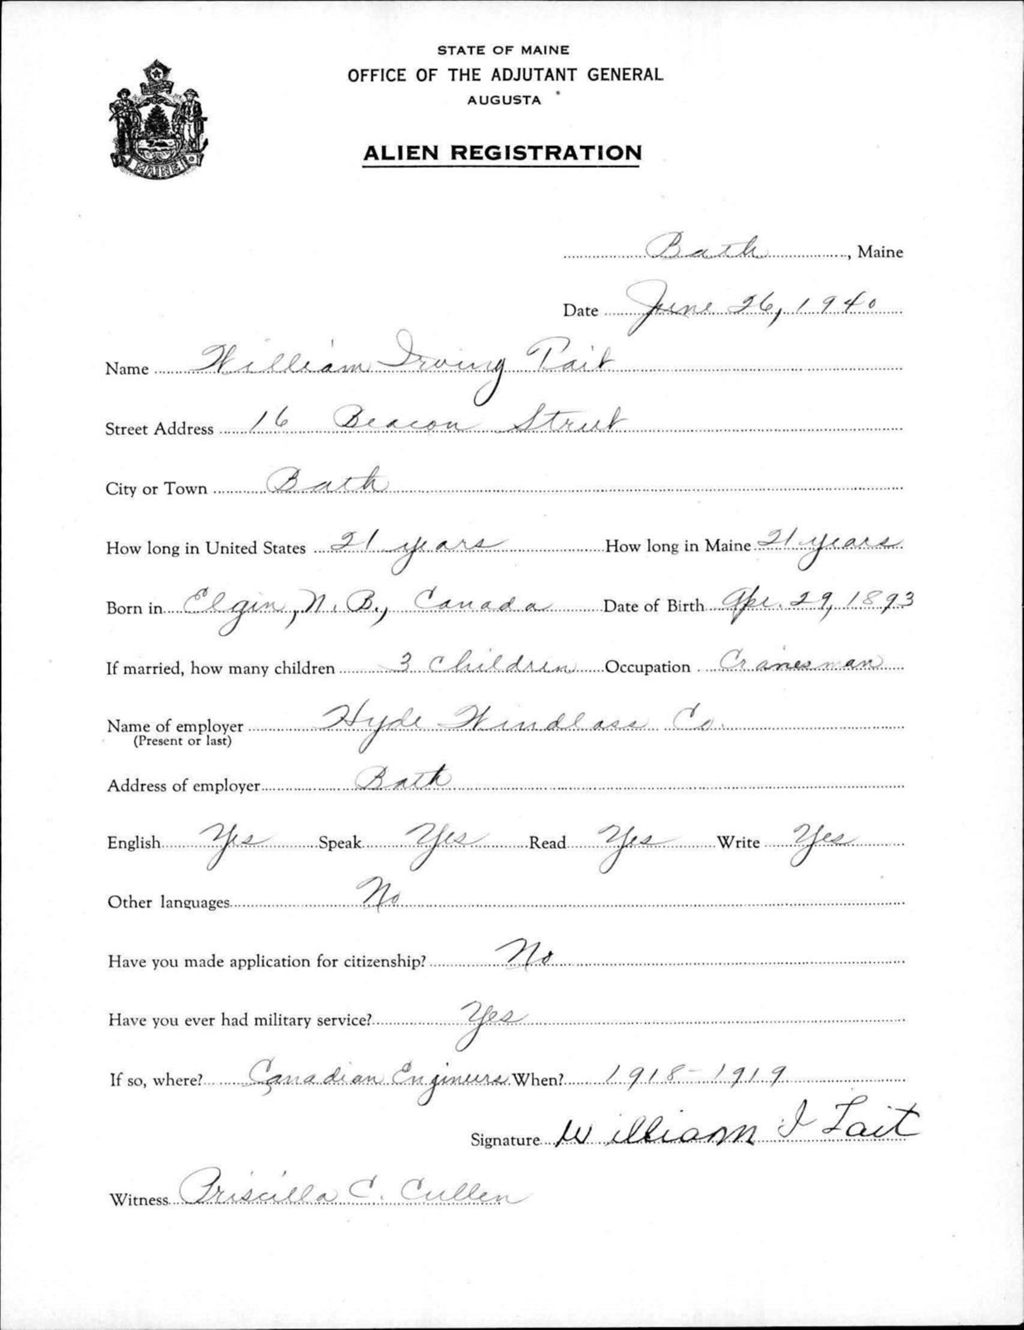 STATE OF MAINE
OFFICE OF THE ADJUTANT GENERAL
AUGUSTA
ALIEN REGISTRATION
MAINE
Bath, Maine
Date June 26, 1940
Name William Irving Tait
Street Address 16 Beacon Street
City or Town Bath
How long in United States 21 years How long in Maine 21 years
Born in Elgin, N. B., Canada Date of Birth Apr. 29, 1893
If married, how many children 3 children Occupation Cranesman
Name of employer Hyde Windlass Co.
(Present or last)
Address of employer Bath
English Yes Speak Yes Read Yes Write Yes
Other languages No
Have you made application for citizenship? No
Have you ever had military service? Yes
If so, where? Canadian Engineers When? 1918-1919
Signature William I Tait
Witness Priscilla C. Cullen